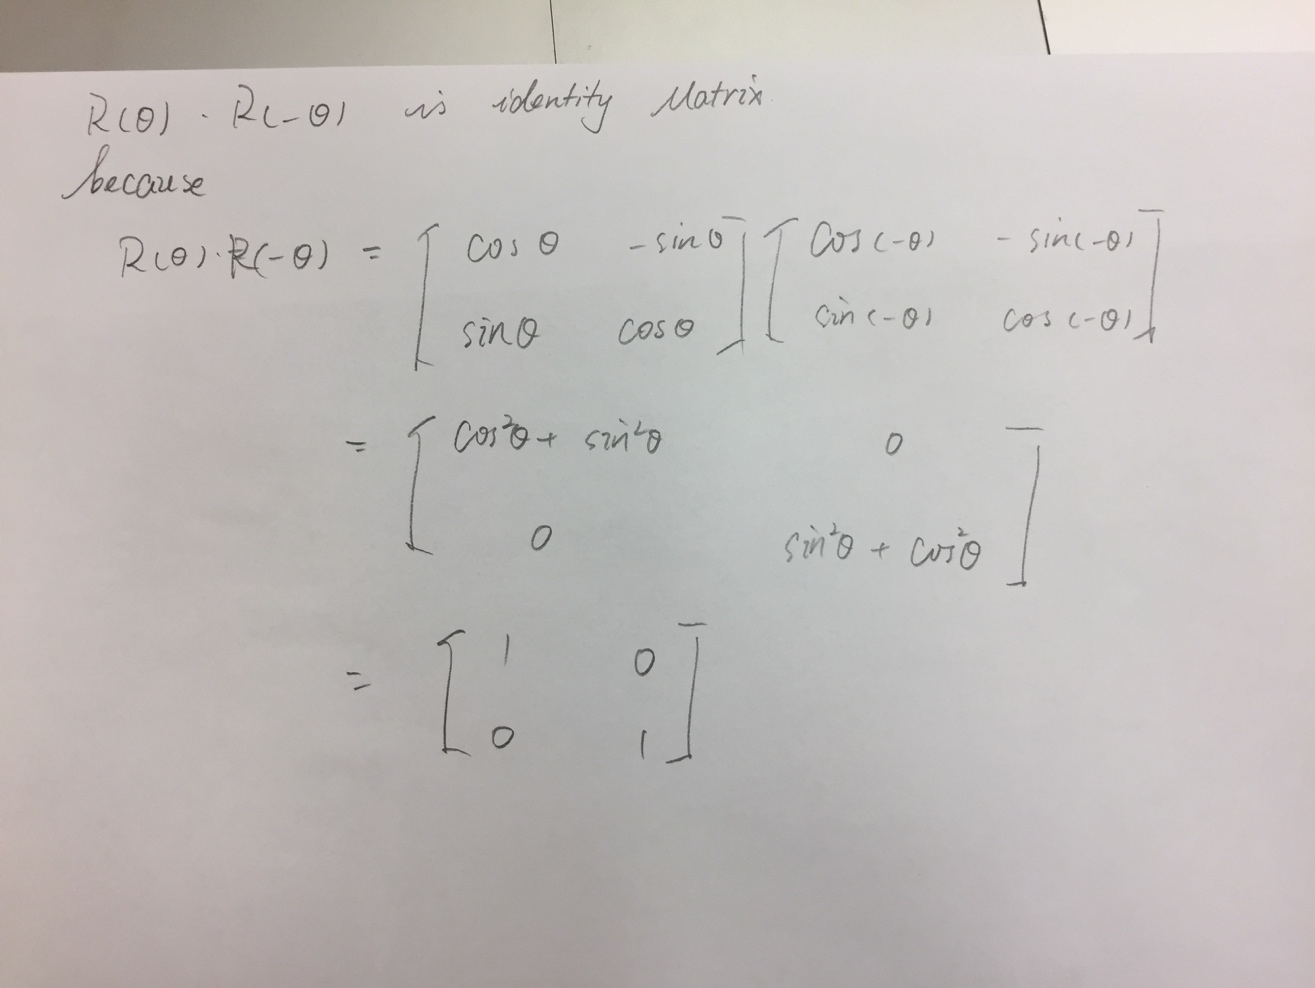 R(θ) · R(-θ) is identity Matrix
because
R(θ)·R(-θ) = [ cos θ -sin θ ] [ cos(-θ) - sin(-θ) ]
sin θ cos θ sin(-θ) cos(-θ)
= [ cos²θ + sin²θ 0 ]
0 sin²θ + cos²θ
= [ 1 0 ]
0 1